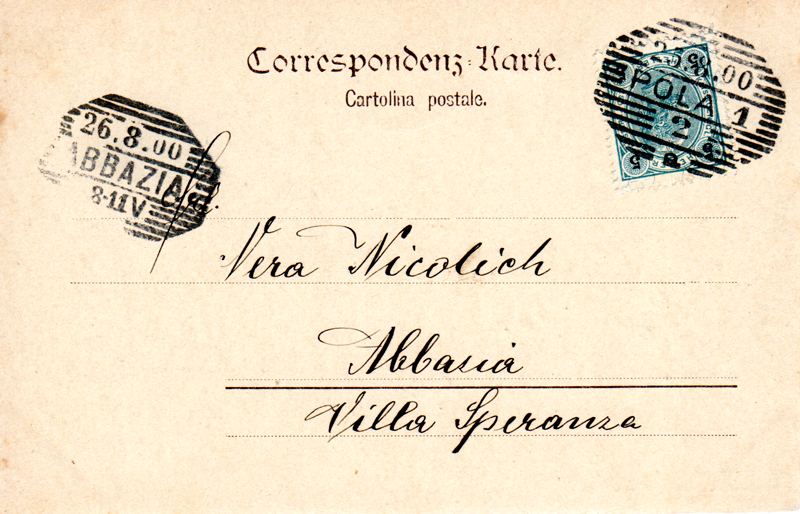 Correspondenz-Karte.
Cartolina postale.
POLA 1
2
26.8.00
ABBAZIA
8-11V
Vera Nicolich
Abbazia
Villa Speranza